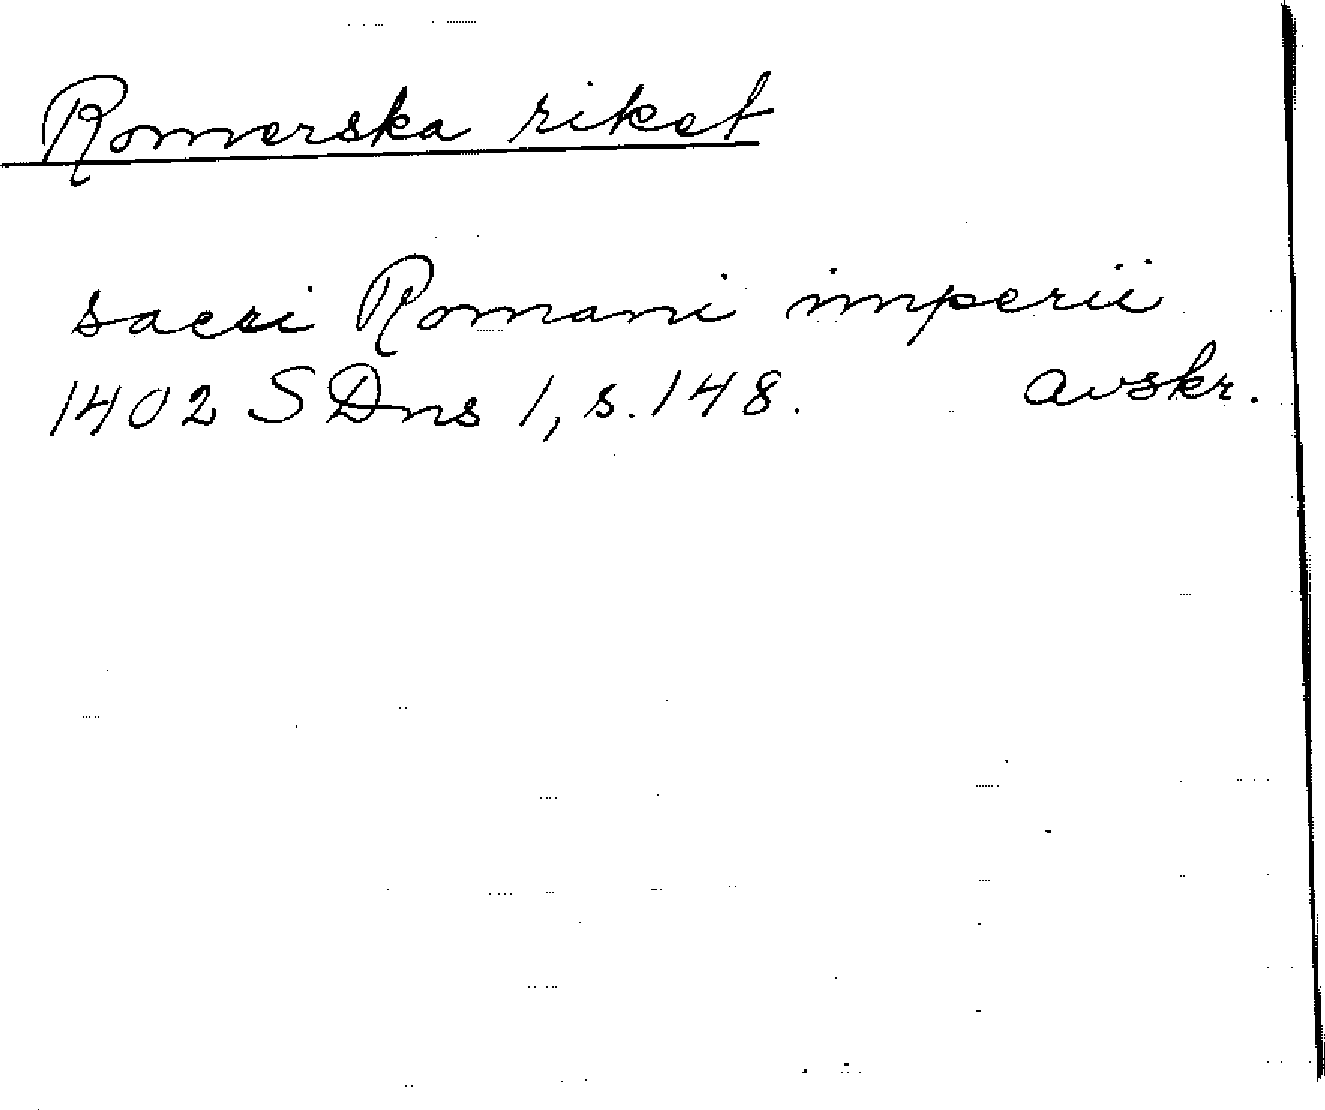 Romerska riket
sacri Romani imperii
1402 SDns 1, s. 148. avskr.